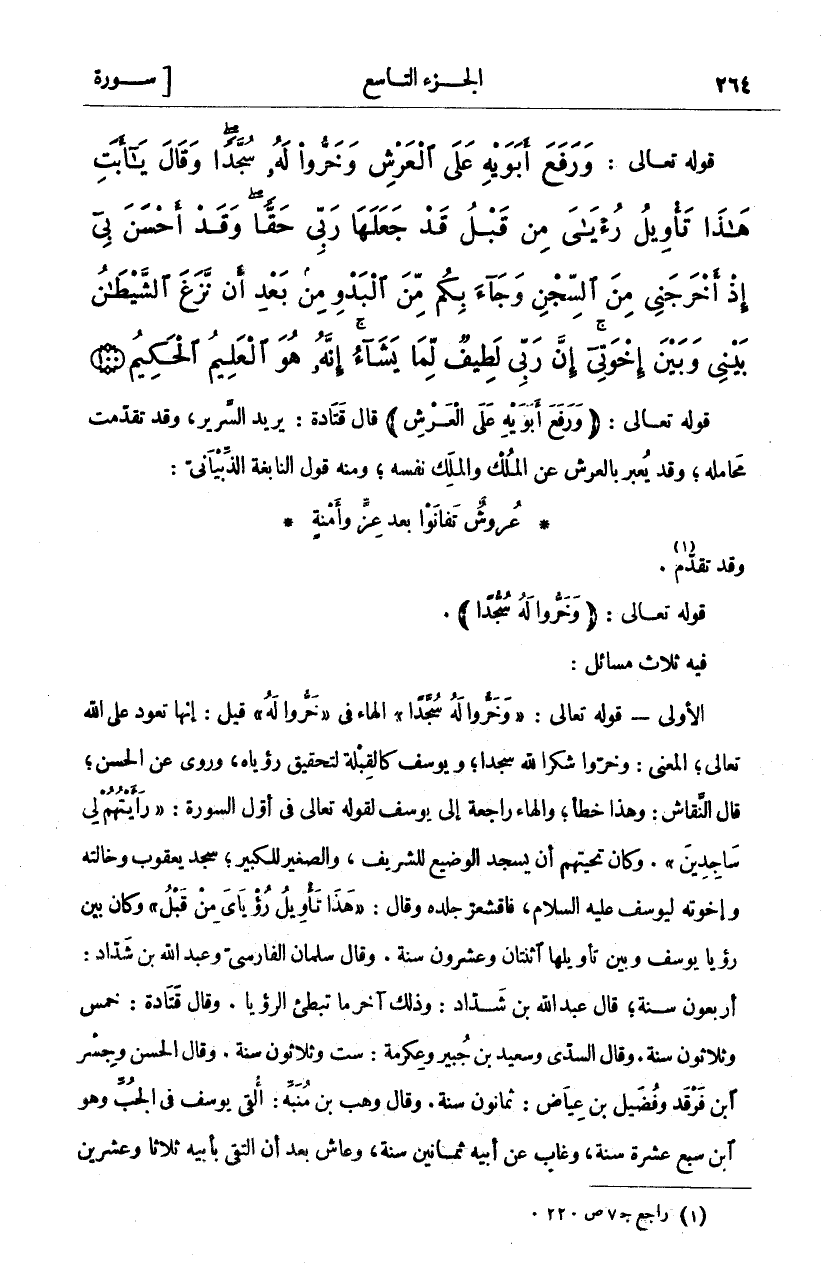 ٢٦٤ الجــزء التــاسع [ ســورة
قوله تعـالى : وَرَفَعَ أَبَوَيْهِ عَلَى ٱلْعَرْشِ وَخَرُّوا۟ لَهُۥ سُجَّدًۭا ۖ وَقَالَ يَـٰٓأَبَتِ
هَـٰذَا تَأْوِيلُ رُءْيَـٰىَ مِن قَبْلُ قَدْ جَعَلَهَا رَبِّى حَقًّۭا ۖ وَقَدْ أَحْسَنَ بِىٓ
إِذْ أَخْرَجَنِى مِنَ ٱلسِّجْنِ وَجَآءَ بِكُم مِّنَ ٱلْبَدْوِ مِنۢ بَعْدِ أَن نَّزَغَ ٱلشَّيْطَـٰنُ
بَيْنِى وَبَيْنَ إِخْوَتِىٓ ۚ إِنَّ رَبِّى لَطِيفٌۭ لِّمَا يَشَآءُ ۚ إِنَّهُۥ هُوَ ٱلْعَلِيمُ ٱلْحَكِيمُ ١٠٠
قوله تعـالى : ﴿ وَرَفَعَ أَبَوَيْهِ عَلَى الْعَـرْشِ ﴾ قال قَتَادة : يريد السَّرير، وقد تقدّمت
مَحَامله؛ وقد يُعبر بالعرش عن المُلْك والملِك نفسه؛ ومنه قول النابغة الذِّبْيَانىّ :
* عُروشٌ تَفانَوْا بعد عِزٍّ وأَمْنةٍ *
وقد تقدّم (١) .
قوله تعـالى : ﴿ وَخَرُّوا لَهُ سُجَّدًا ﴾ .
فيه ثلاث مسائل :
الأولى — قوله تعالى : « وَخَرُّوا لَهُ سُجَّدًا » الهاء فى « خَرُّوا لَهُ » قيل : إنها تعود على الله
تعالى؛ المعنى : وخرّوا شكرا لله سجدا؛ و يوسف كالقِبْلة لتحقيق رؤياه، وروى عن الحسن؛
قال النَّقاش : وهذا خطأ؛ والهاء راجعة إلى يوسف لقوله تعالى فى أوّل السورة : « رَأَيْتُهُمْ لِي
سَاجِدِينَ » . وكان تحيتهم أن يسجد الوضيع للشريف ، والصغير للكبير؛ سجد يعقوب وخالته
و إخوته ليوسف عليه السلام، فاقشعرّ جلده وقال : « هَذَا تَأْوِيلُ رُؤْيَاىَ مِنْ قَبْلُ » وكان بين
رؤيا يوسف و بين تأو يلها ٱثنتان وعشرون سنة . وقال سلمان الفارسىّ وعبد الله بن شدّاد :
أربعون ســنة؛ قال عبد الله بن شَــدّاد : وذلك آخر ما تبطئ الرؤيا . وقال قَتَادة : خمس
وثلاثون سنة. وقال السدّى وسعيد بن جُبير وعِكرمة : ست وثلاثون سنة . وقال الحسن وجِسْر
ٱبن فَرْقَد وفُضَيل بن عِيَاض : ثمانون سنة. وقال وهب بن مُنَبّه : أُلقى يوسف فى الجُبّ وهو
ٱبن سبع عشرة سنة، وغاب عن أبيه ثمــانين سنة، وعاش بعد أن التقى بأبيه ثلاثا وعشرين
(١) راجع جـ ٧ ص ٢٢٠ .